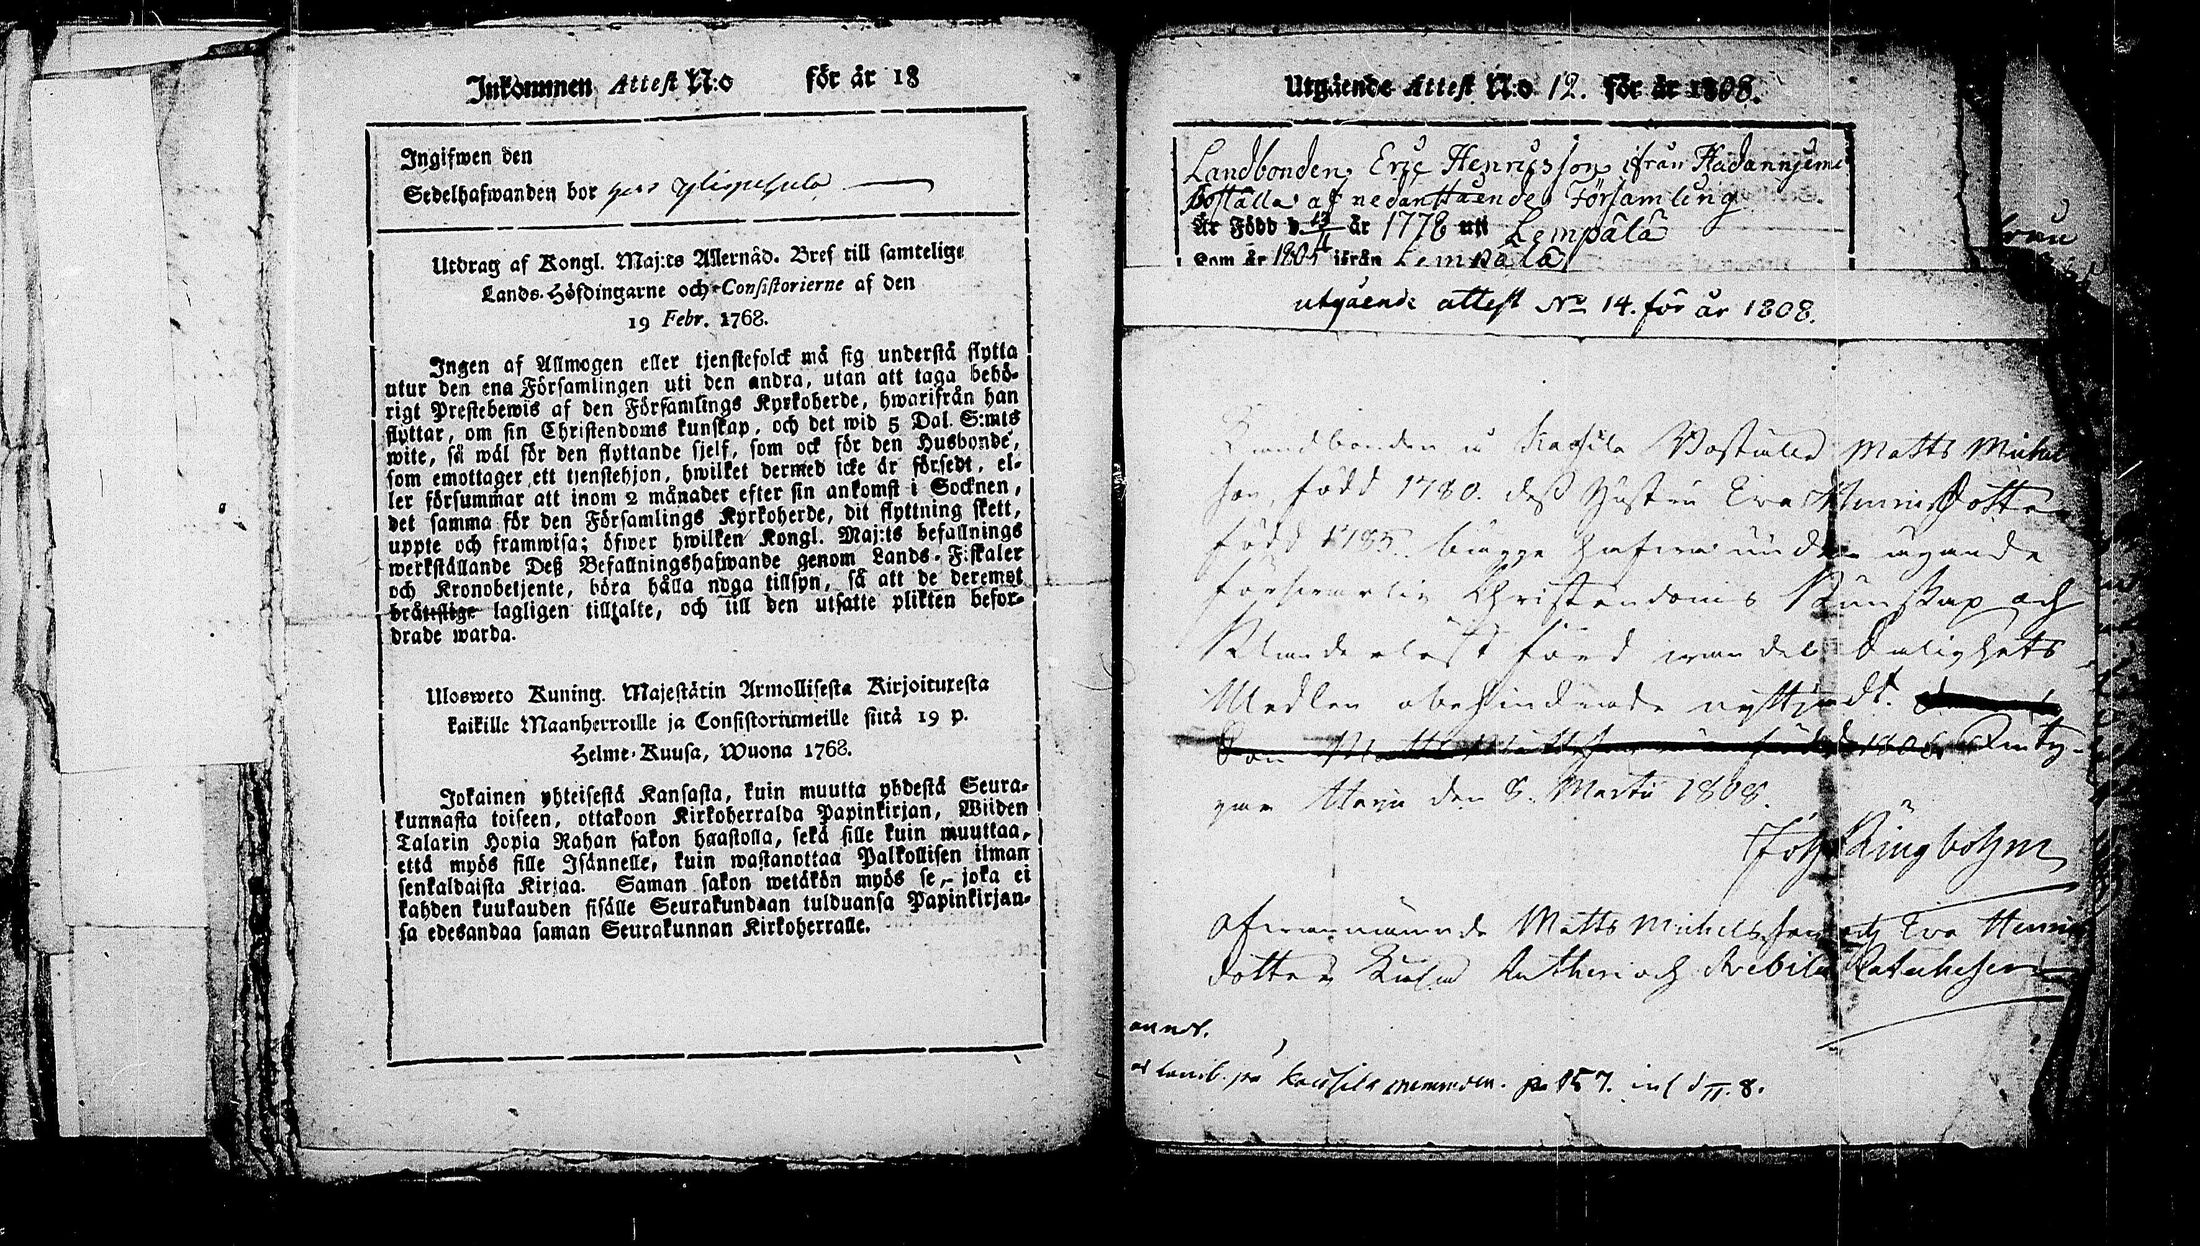 Inkommen Attest N:o för år 18
Ingifwen den
Sedelhafwanden bor
Utdrag af Kongl. Maj:ts Allernåd. Bref till samtelige
Lands-Höfdingarne och Consistorierne af den
19 Febr. 1768.
Ingen af Allmogen eller tjenstefolck må sig understå flytta
utur den ena Församlingen uti den andra, utan att taga behö-
rigt Prestebewis af den Församlings Kyrkoherde, hwarifrån han
flyttar, om sin Christendoms kunskap, och det wid 5 Dal. S:mts
wite, så wäl för den flyttande sjelf, som ock för den Husbonde,
som emottager ett tjenstehjon, hwilket dermed icke är försedt, el-
ler försummar att inom 2 månader efter sin ankomst i Socknen,
det samma för den Församlings Kyrkoherde, dit flyttning skett,
uppte och framwisa; öfwer hwilken Kongl. Maj:ts befallnings
werkställande Deß Befallningshafwande genom Lands-Fiskaler
och Kronobetjente, böra hålla noga tillsyn, så att de deremot
bråttslige lagligen tilltalte, och till den utsatte plikten befor-
drade warda.
Ulosweto Kuning. Majestätin Armollisesta Kirjoituxesta
kaikille Maanherroille ja Consistoriumeille siitä 19 p.
Helme-Kuusa, Wuona 1768.
Jokainen yhteisestä Kansasta, kuin muutta yhdestä Seura-
kunnasta toiseen, ottakoon Kirkoherralda Papinkirjan, Wiiden
Talarin Hopia Rahan sakon haastolla, sekä sille kuin muuttaa,
että myös sille Isännelle, kuin wastanottaa Palkollisen ilman
senkaldaista Kirjaa. Saman sakon wetäkön myös se, joka ei
kahden kuukauden sisälle Seurakundaan tulduansa Papinkirjan-
sa edesandaa saman Seurakunnan Kirkoherralle.
Utgående Attest N:o 12. för år 1808.
Landbonden Eric Henricsson ifrån
Boställe af nedanstående Församling
Är Född d. 13/11 år 1778 uti Lempälä
Som år 1805 ifrån Lempälä
utgående attest No 14. för år 1808.
Landbonden Matts Michel
son, född 1780. deß Hustru Eva Henricsdotter
född 1785. begge hafwa
försvarlig Christendoms Kunskap och
Klanderlöst förd wandel Salighets
Medlen obehindrade nyttjadt.
född 1806
den 8. Martii 1808.
Joh Ringbohm
Ofwannämnde Matts Michelsson och Eva Henrics
dotter Lutheri och Svebilii Katecheser
p. 157.